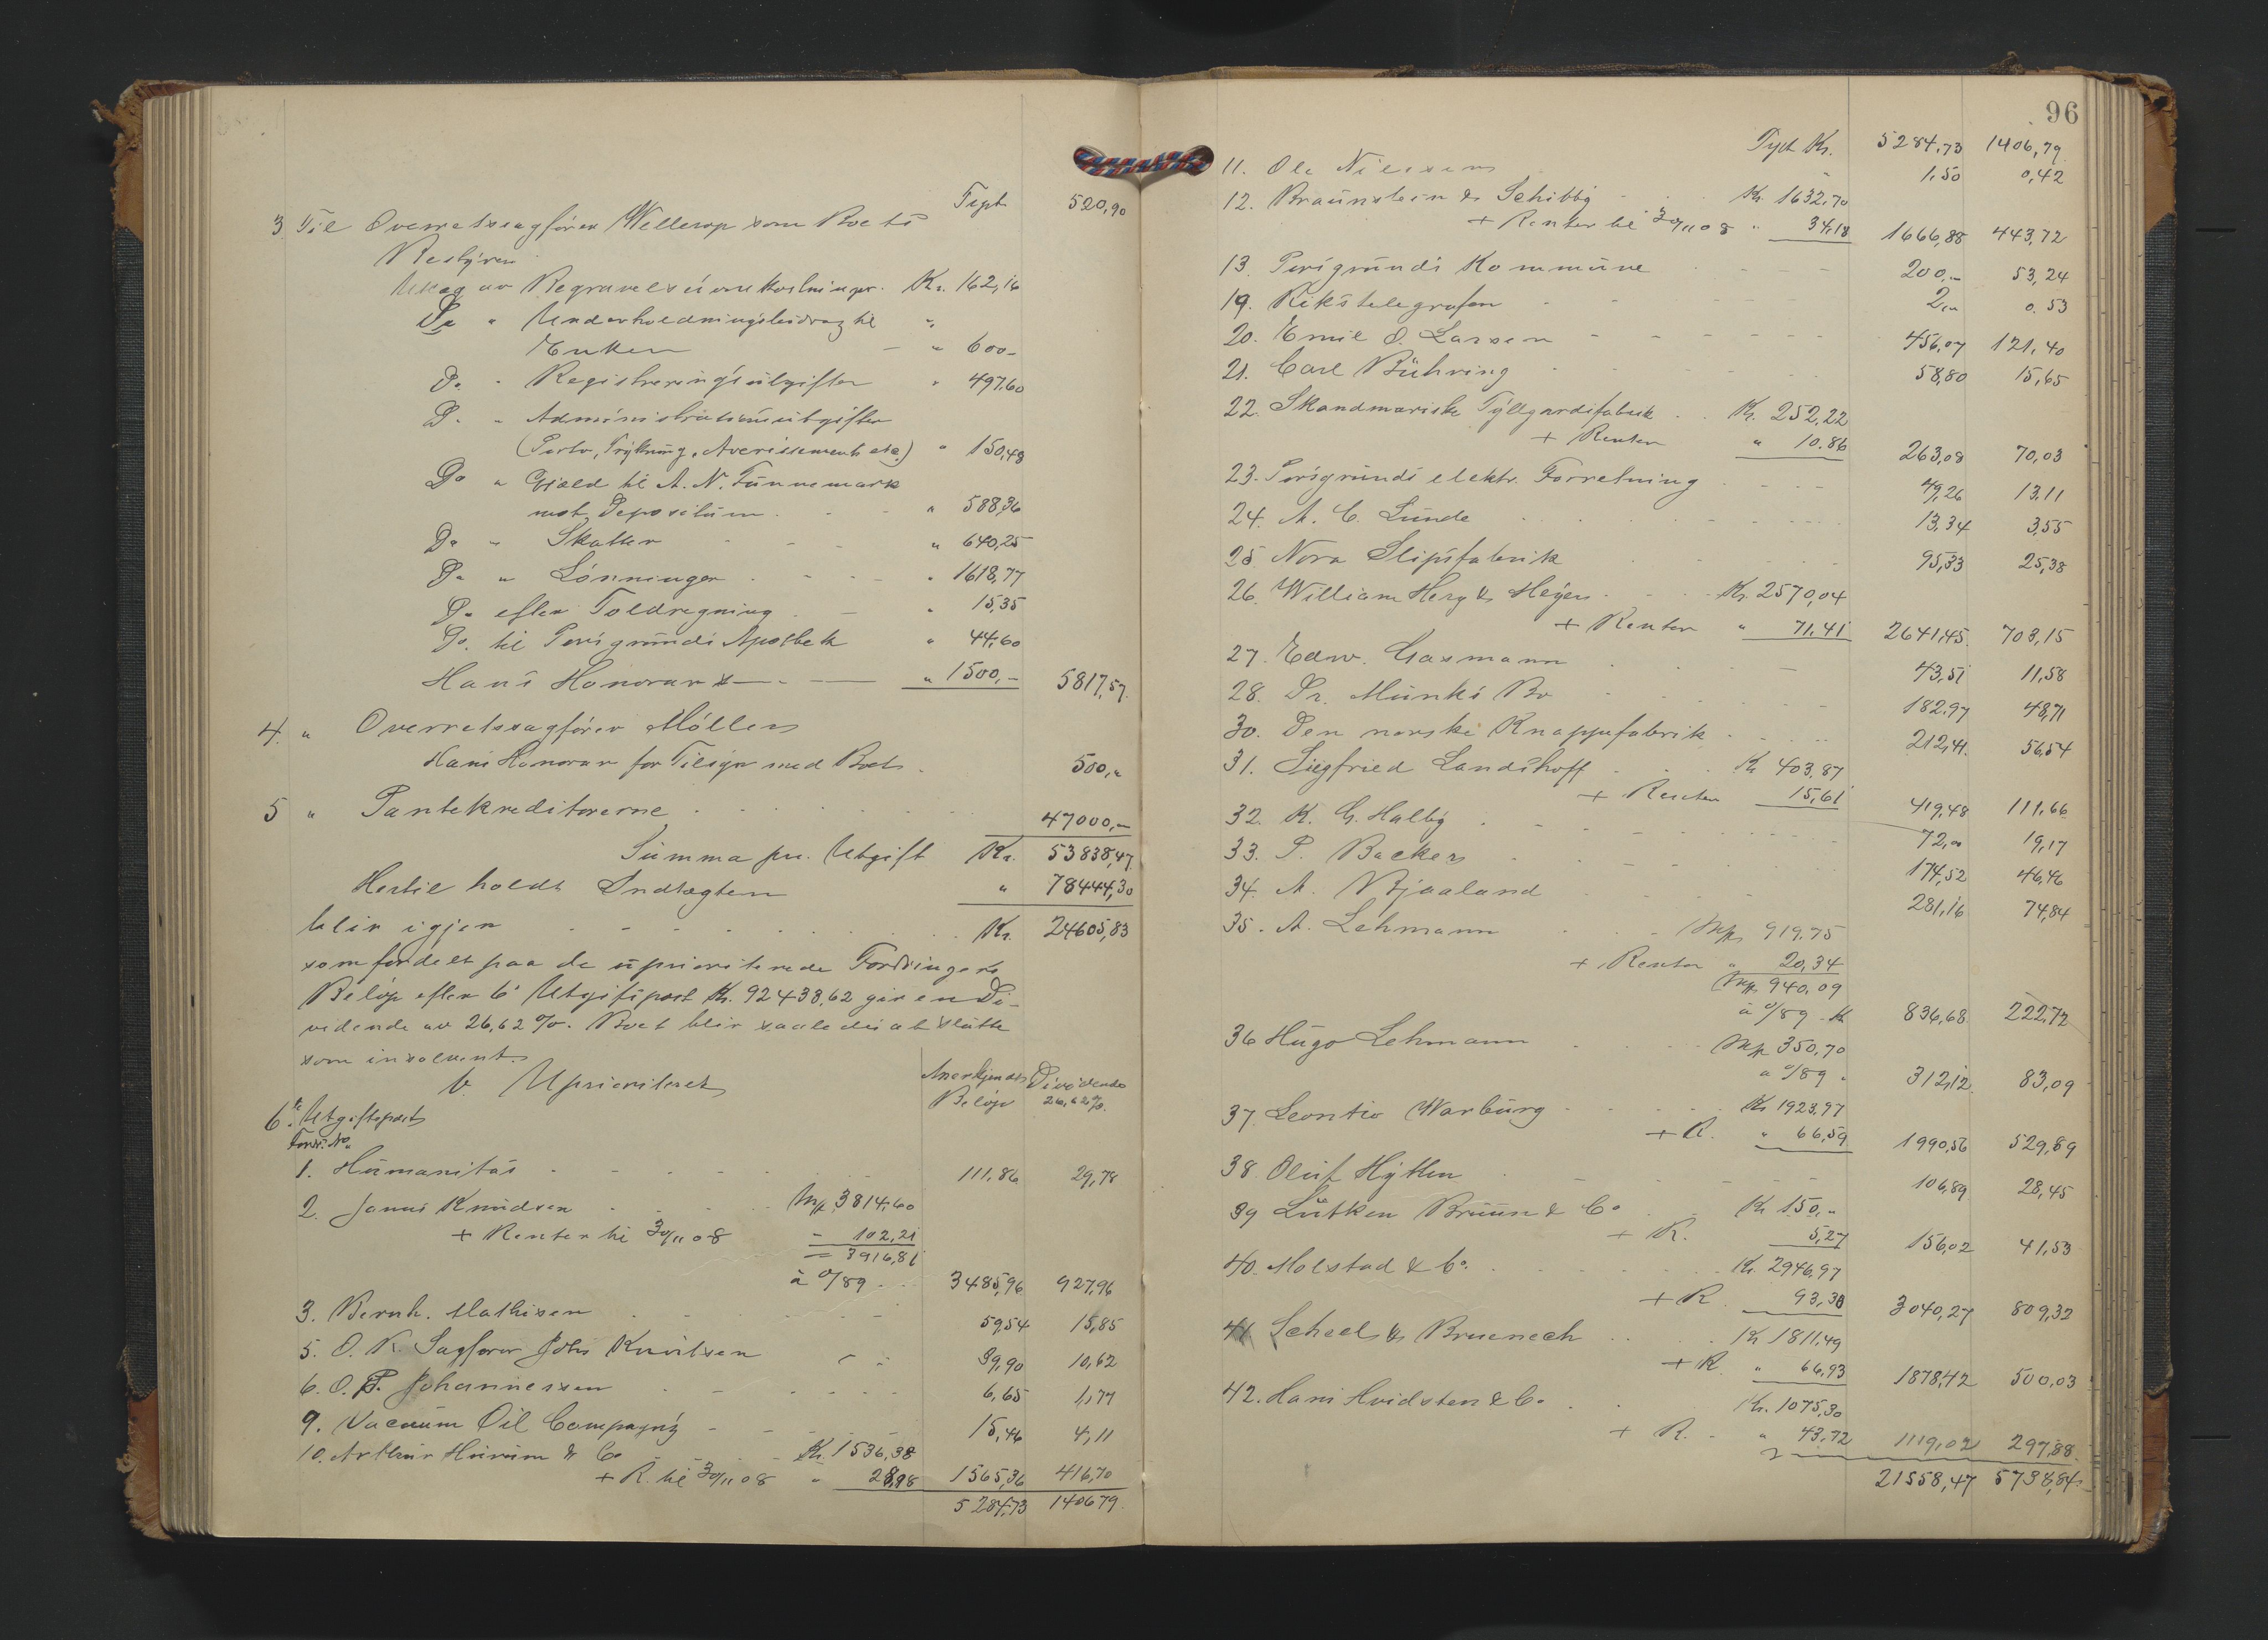 Tspt 520,90
3. Til Overretssagfører Wellerop som Boets
Bestyrer
Utlæg av Begravelsesomkostninger. Kr. 162,16
Do " Underholdningsbidrag til "
Enken - " 600-
Do " Registreringsutgifter " 497,60
Do " Administrationsutgifter
(Porto, Trykning, Avertissement etc.) " 150,48
Do " Gjæld til A. N. Tunnemark
mot Depositum . - - " 588,36
Do " Skatter - - - " 640,25
Do " Lønninger - - - " 1618,77
Do efter Toldregning - - " 15,35
Do. til Porsgrunds Apothek " 44,60
Hans Honorar " 1500,- 5817,57
4. " Overretssagfører Møller
Hans Honorar for Tilsyn med Boet . 500,"
5 " Pantekreditorerne . 47000,-
Summa pr. Utgift Kr. 53838,47
Hertil holdt Indtægten " 78444,30
blir igjen . Kr. 24605,83
som fordelt paa de uprioriterede Fordringers
Beløp efter 6' Utgiftspost Kr. 92438,62 gir en Di-
vidende av 26,62 %. Boet blir saaledes at slutte
som insolvent.
b. Uprioritert Anerkjendt Beløp Dividende 26,62%.
6te Utgiftspost
Fordr. No.
1. Humanitas - 111,86 29,78
2. Janus Knudsen Mk 3814,60
+ Renter til 30/11 08 - 102,21
= 3916,81
à 0/89 3485,96 927,96
3. Bernh. Mathisen 59,54 15,85
5. O. R. Sagfører Johs Knudsen 39,90 10,62
6. O. P. Johannessen 6,65 1,77
9. Vacuum Oil Company 15,46 4,11
10. Arthur Hurum & Co Kr. 1536,38
+ R. til 30/11 08 " 28,98 1565,36 416,70
5284,73 1406,79
96
Tspt Kr. 5284,73 1406,79
11. Ole Nielsen 1,50 0,42
12. Braunstein & Schibbÿ Kr. 1632,70
+ Renter til 30/11 08 " 34,18 1666,88 443,72
13. Porsgrunds Kommune 200,- 53,24
19. Rikstelegrafen 2,- 0.53
20. Emil O. Larsen 456,07 121,40
21. Carl Bühring 58,80 15,65
22. Skandinaviske Tyllgardifabrik Kr. 252,22
+ Renter " 10.86 263,08 70,03
23. Porsgrunds elektr. Forretning 49,26 13,11
24. A. C. Lunde 13,34 3,55
25 Nora Slipsfabrik 95,33 25,38
26. William Herz & Heyer Kr. 2570,04
+ Renter " 71,41 2641,45 703,15
27. Edw. Gasmann 43,51 11,58
28. Dr. Munks Bo 182,97 48,71
30. Den norske Knappefabrik 212,41 56,54
31. Siegfried Landshoff Kr 403,87
+ Renter 15,61 419,48 111,66
32. K. G. Halby 72,- 19,17
33. P. Backer 174,52 46,46
34. A. Bjaaland 281,16 74,84
35. A. Lehmann Mk 919,75
+ Renter " 20,34
Mk 940,09
à 0/89 Kr 836,68 222,72
36 Hugo Lehmann Mk 350,70
a 0/89 " 312,12 83,09
37. Leontio Warburg Kr 1923,97
+ R. " 66,59 1990,56 529,89
38 Oluf Hytten 106,89 28,45
39 Lütken Bruun & Co Kr 150,-
+ R. 5,27 156,02 41,53
40. Molstad & Co. Kr. 2946,97
+ R 93,30 3040,27 809,32
41 Scheel & Bruenech Kr 1811,49
+ R " 66,93 1878,42 500,03
42. Hans Hvidsten & Co Kr. 1075,30
+ R. " 43,72 1119,02 297,88
21558,47 5738,84